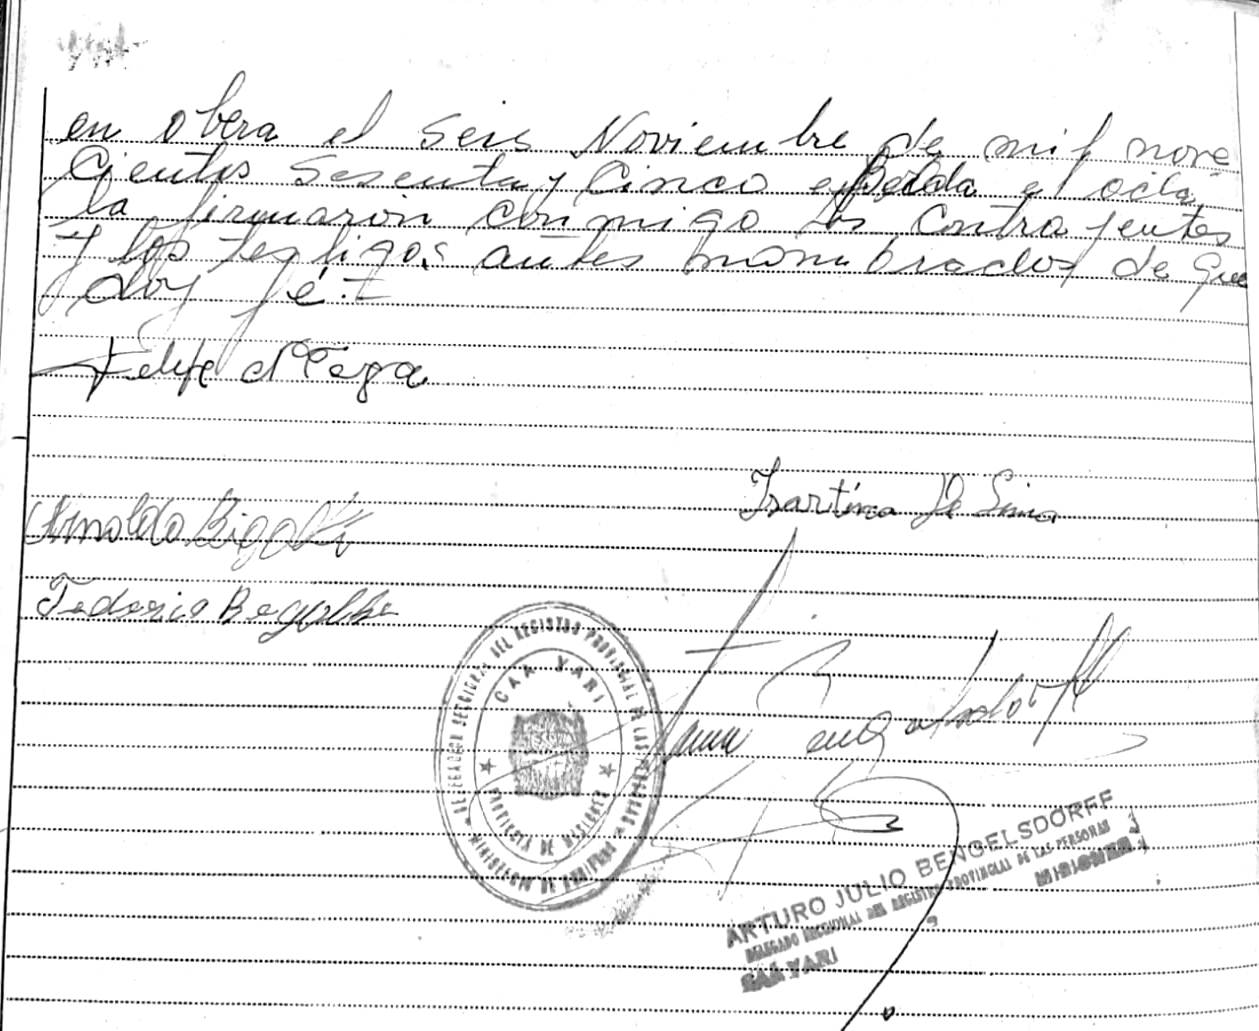 en obera el seis Noviembre de mil nove
cientos sesenta y cinco el acta
la firmaron conmigo los contrajentes
y los testigos antes nombrados de que
doy fé.=
Felipe
Arnoldo
Federico
CAA YARI
DELEGACION SECCIONAL DEL REGISTRO PROVINCIAL DE LAS PERSONAS
PROVINCIA DE MISIONES
MINISTERIO DE GOBIERNO
ARTURO JULIO BENGELSDORFF
DELEGADO SECCIONAL DEL REGISTRO PROVINCIAL DE LAS PERSONAS
CAA YARI MISIONES